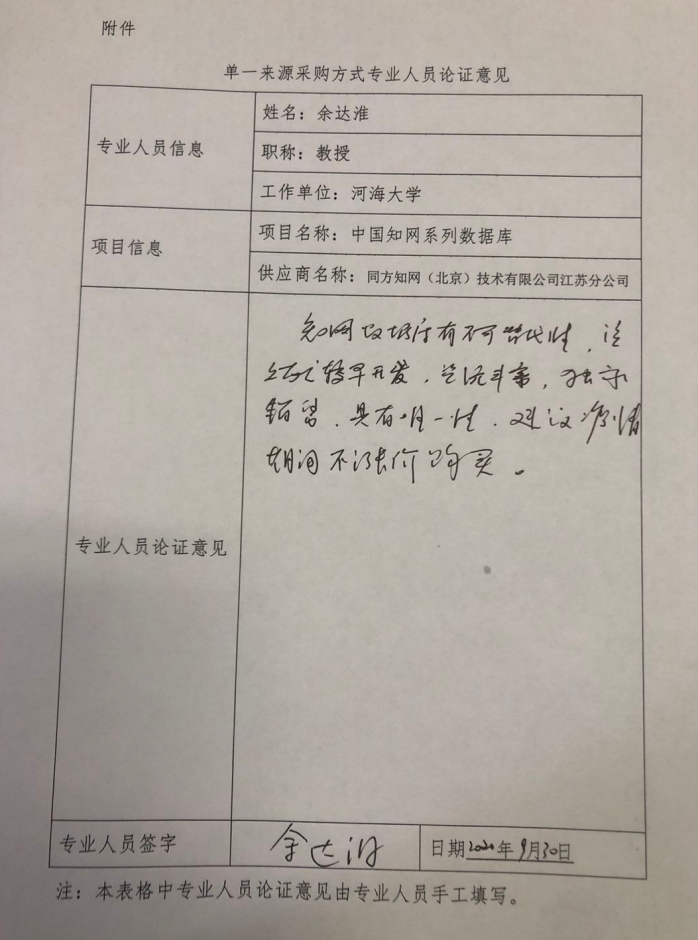 附件
单一来源采购方式专业人员论证意见
专业人员信息
姓名：余达淮
职称：教授
工作单位：河海大学
项目信息
项目名称：中国知网系列数据库
供应商名称：同方知网（北京）技术有限公司江苏分公司
专业人员论证意见
知网数据库有不可替代性，该
公司较早开发，
销售，具有唯一性，建议疫情
期间不涨价购买。
专业人员签字
余达淮
日期2020年9月30日
注：本表格中专业人员论证意见由专业人员手工填写。